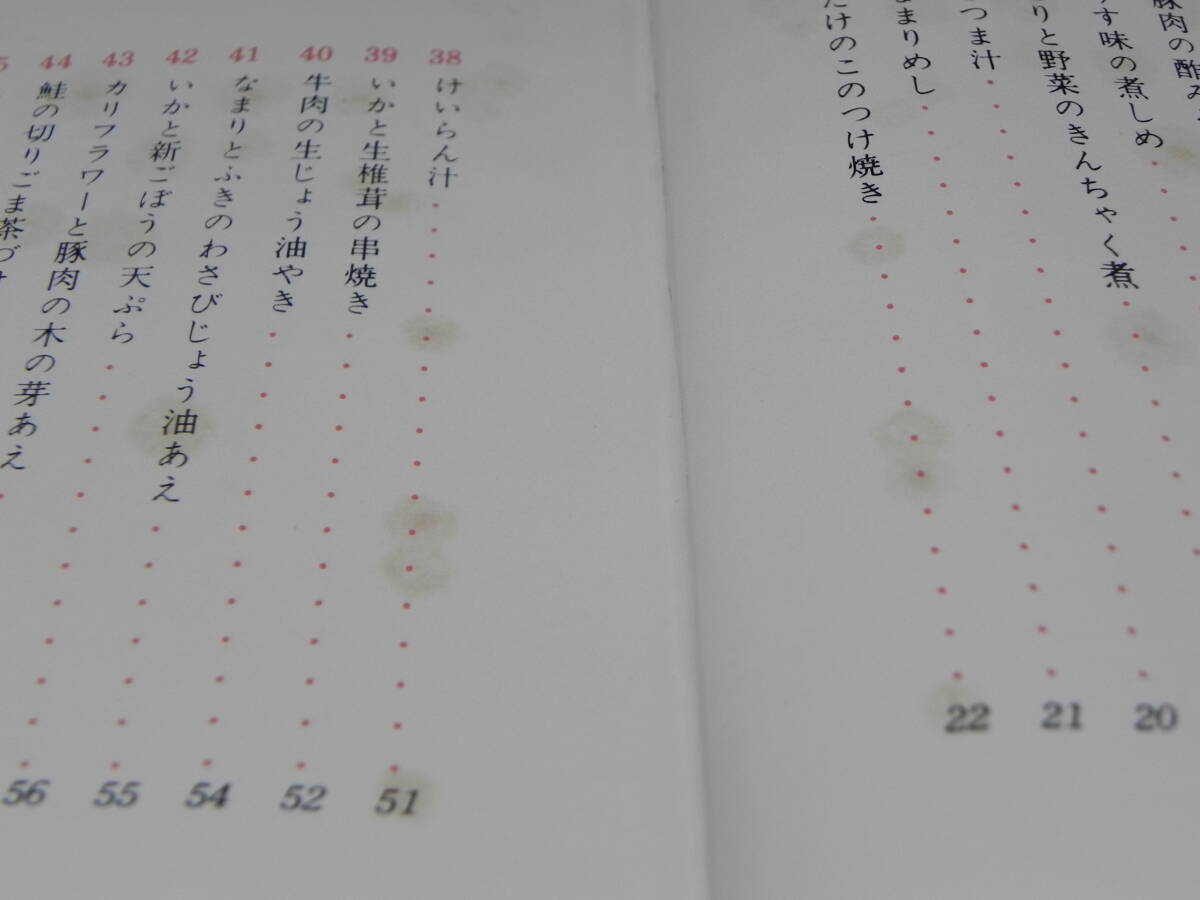 豚肉の酢み
す味の煮しめ
りと野菜のきんちゃく煮
つま汁・・・20
まりめし・・・21
たけのこのつけ焼き・・・22
38 けいらん汁・・・51
39 いかと生椎茸の串焼き・・・52
40 牛肉の生じょう油やき・・・54
41 なまりとふきのわさびじょう油あえ・・・55
42 いかと新ごぼうの天ぷら・・・56
43 カリフラワーと豚肉の木の芽あえ
44 鮭の切りごま茶づけ
5